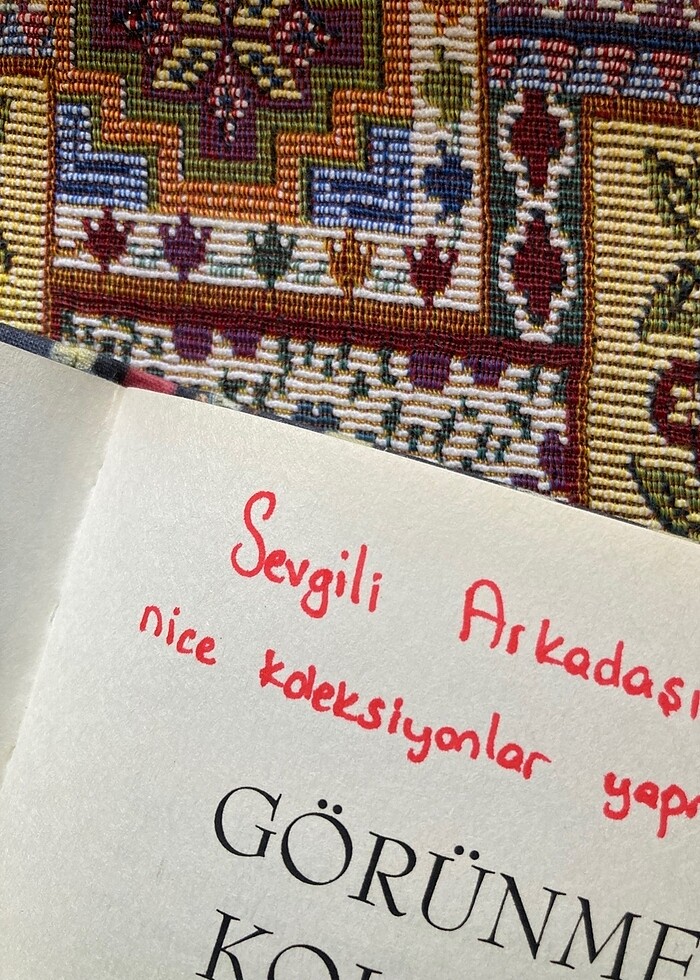 Sevgili Arkadaşı
nice koleksiyonlar yap
GÖRÜNME
KOL